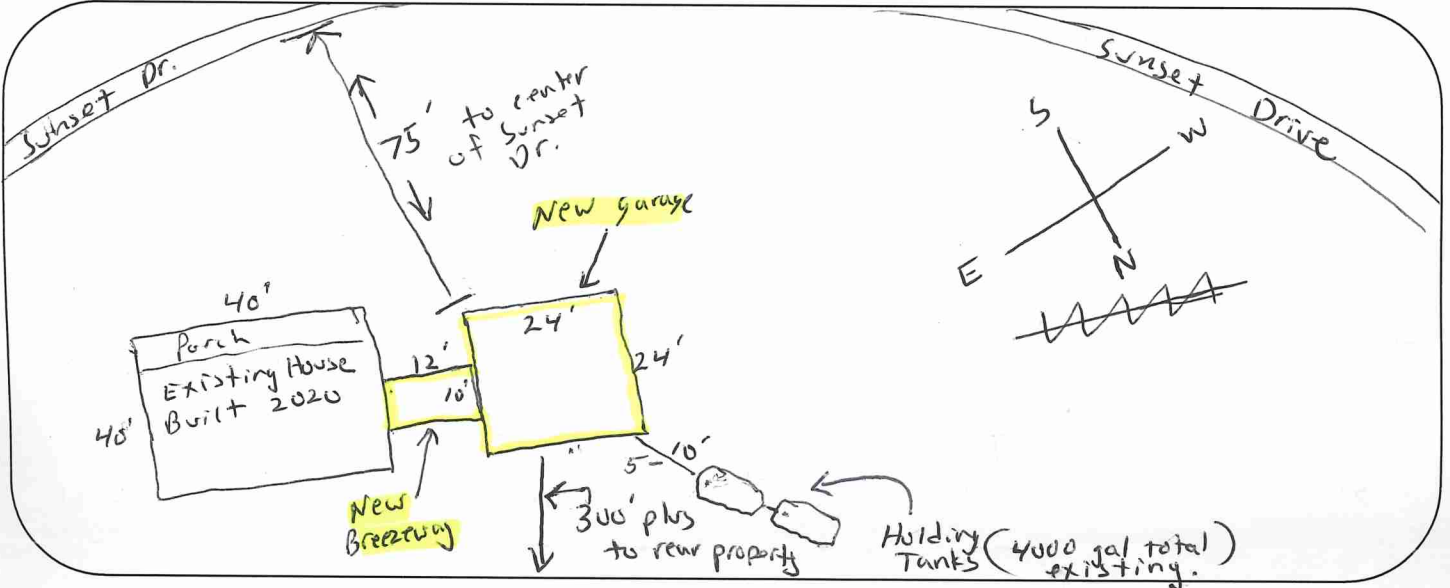 Sunset Dr.
Sunset Drive
75' to center
of Sunset
Dr.
S
W
E
N
New garage
40'
Porch
Existing House
Built 2020
40'
12'
10'
24'
24'
5-10'
New
Breezeway
300' plus
to rear property
Holding
Tanks (4000 gal total)
existing.